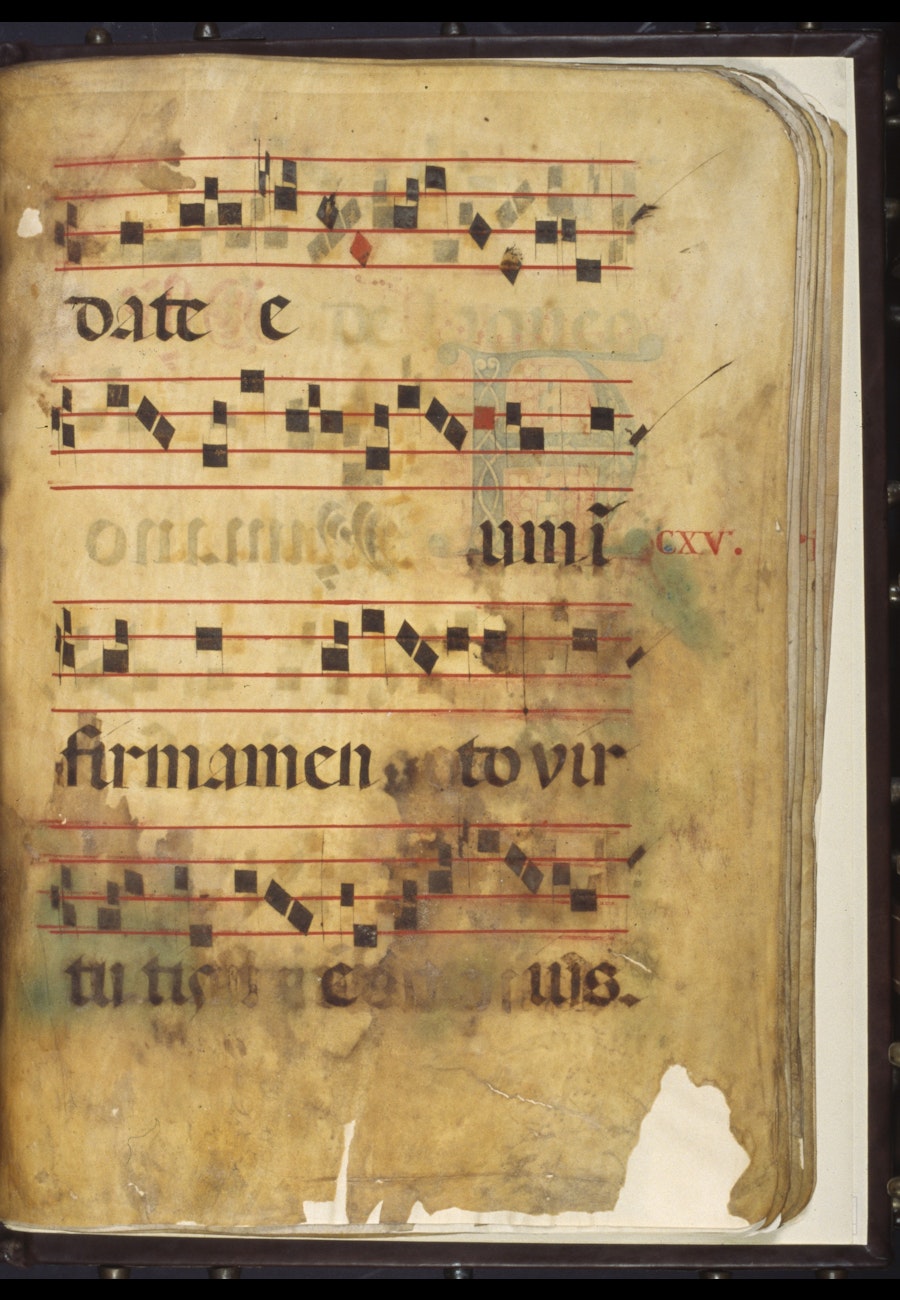 date e
umī
CXV.
firmamen to vir
tu tis e uis.